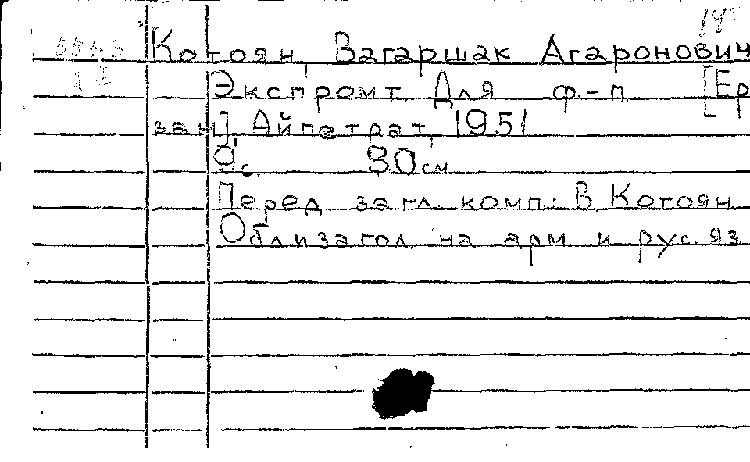 Котоян, Вагаршак Агаронович
Экспромт Для ф-п [Ер
зан] Айпетрат, 1951
9 с. 30 см
Перед загл. комп: В. Котоян
Обл и загол на арм и рус. яз